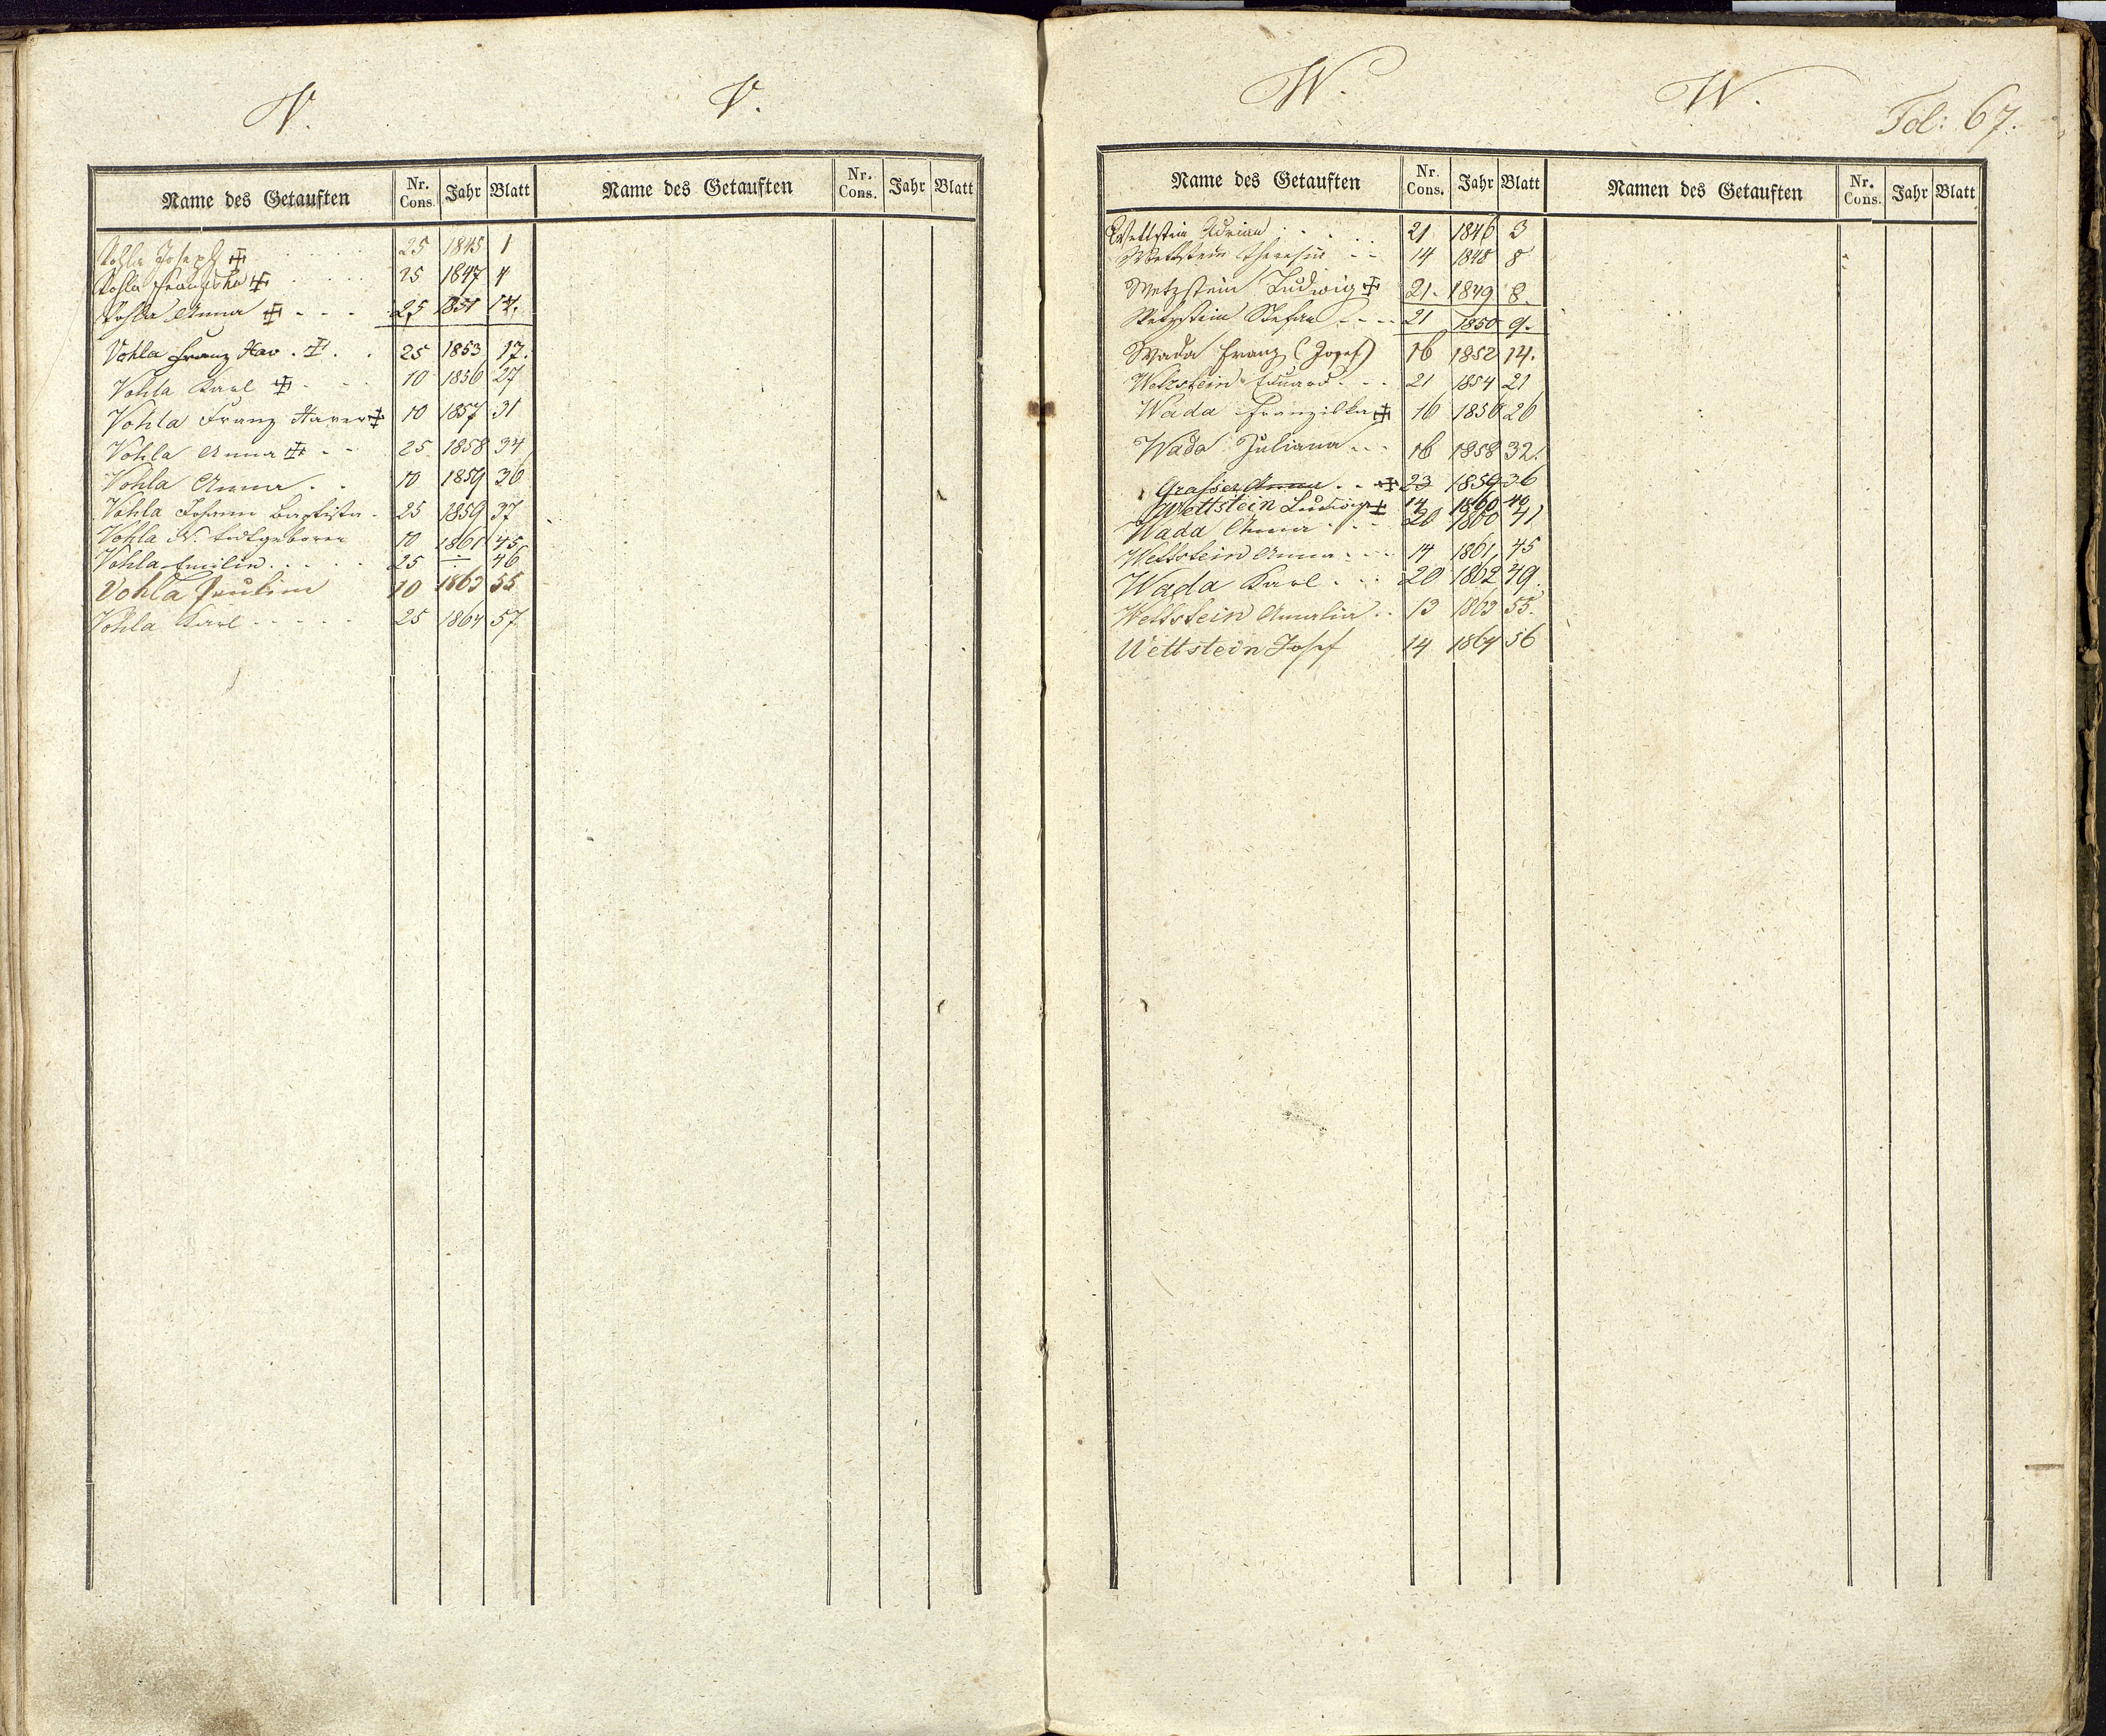 V. V.
Name des Getauften Nr. Cons. Jahr Blatt Name des Getauften Nr. Cons. Jahr Blatt
Vohla Joseph ☩ 25 1845 1
Vohla Franziska ☩ 25 1847 4
Vohla Anna ☩ - - - 25 1851 14.
Vohla Franz Xav. ☩ . . 25 1853 17.
Vohla Karl ☩ - - - 10 1856 27
Vohla Franz Xaver ☩ 10 1857 31
Vohla Anna ☩ - - 25 1858 34
Vohla Anna . . 10 1859 36
Vohla Johann Baptista - 25 1859 37
Vohla N. todtgeboren 10 1861 45
Vohla Emilie . . . . . 25 ÷ 46
Vohla Paulina 10 1863 55
Vohla Karl - - - - - 25 1864 57
W. W. Fol: 67.
Name des Getauften Nr. Cons. Jahr Blatt Namen des Getauften Nr. Cons. Jahr Blatt
Wettstein Adrian . . . . 21 1846 3
Wettstein Theresia - - 14 1848 8
Wetzstein Ludwig ☩ 21. 1849 8.
Wetzstein Stefan - - - - 21 1850 9.
Wada Franz (Josef) 16 1852 14.
Wetzstein Eduard - - - 21 1854 21
Wada Franziska ☩ 16 1856 26
Wada Juliana - - - 16 1858 32.
Grasser Anna . - ☩ 23 1859 36
Wettstein Ludwig ☩ 14 1860 40
Wada Anna - - - 20 1860 41
Wettstein Anna - - - 14 1861 45
Wada Karl . . . 20 1862 49.
Wettstein Amalia . . 13 1863 55.
Wettstein Josef 14 1864 56